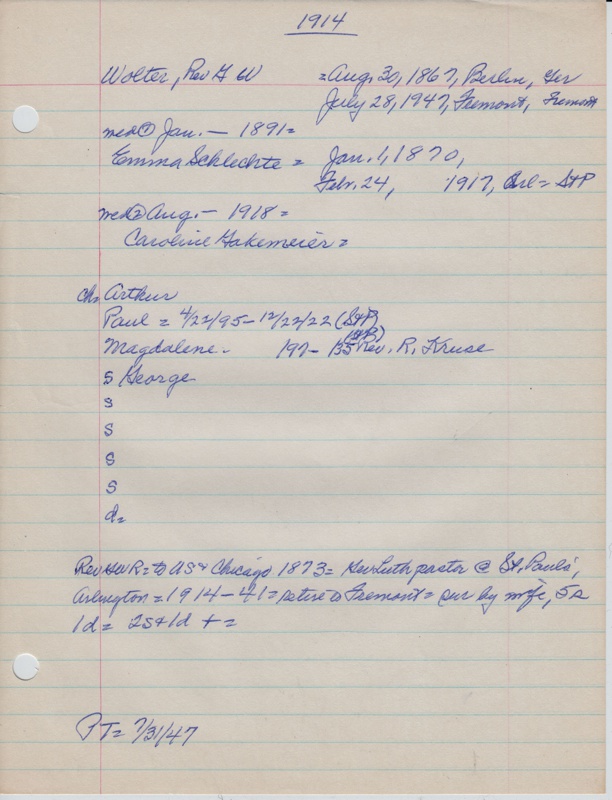 1914
Wolter, Rev G W = Aug. 30, 1867, Berlin, Ger
July 28, 1947, Fremont, Fremont
med① Jan. — 1891=
Emma Schlechte = Jan. 1, 1870,
Febr. 24, 1917, Arl = StP
med② Aug. — 1918 =
Caroline Hakemeier =
ch. Arthur
Paul = 4/22/95 - 12/22/22 (StP)
(StP)
Magdalene. 197- 135 Rev. R. Kruse
S George
S
S
S
S
S
d=
to US & Chicago 1873 = pastor @ St. Pauls,
Arlington = 1914-41 = retire to Fremont = sur by wife, 5s
1d = 2s & 1d + =
PT = 7/31/47